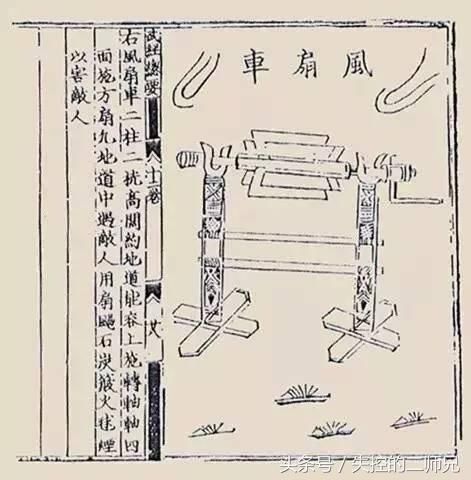 風扇車
武經總要
十二卷
右風扇車二柱二桄高闊約地道能容上施轉軸軸四
面施方扇凡地道中遇敵人用扇颺石炭簸火毬煙
以害敵人
头条号/失控的二师兄